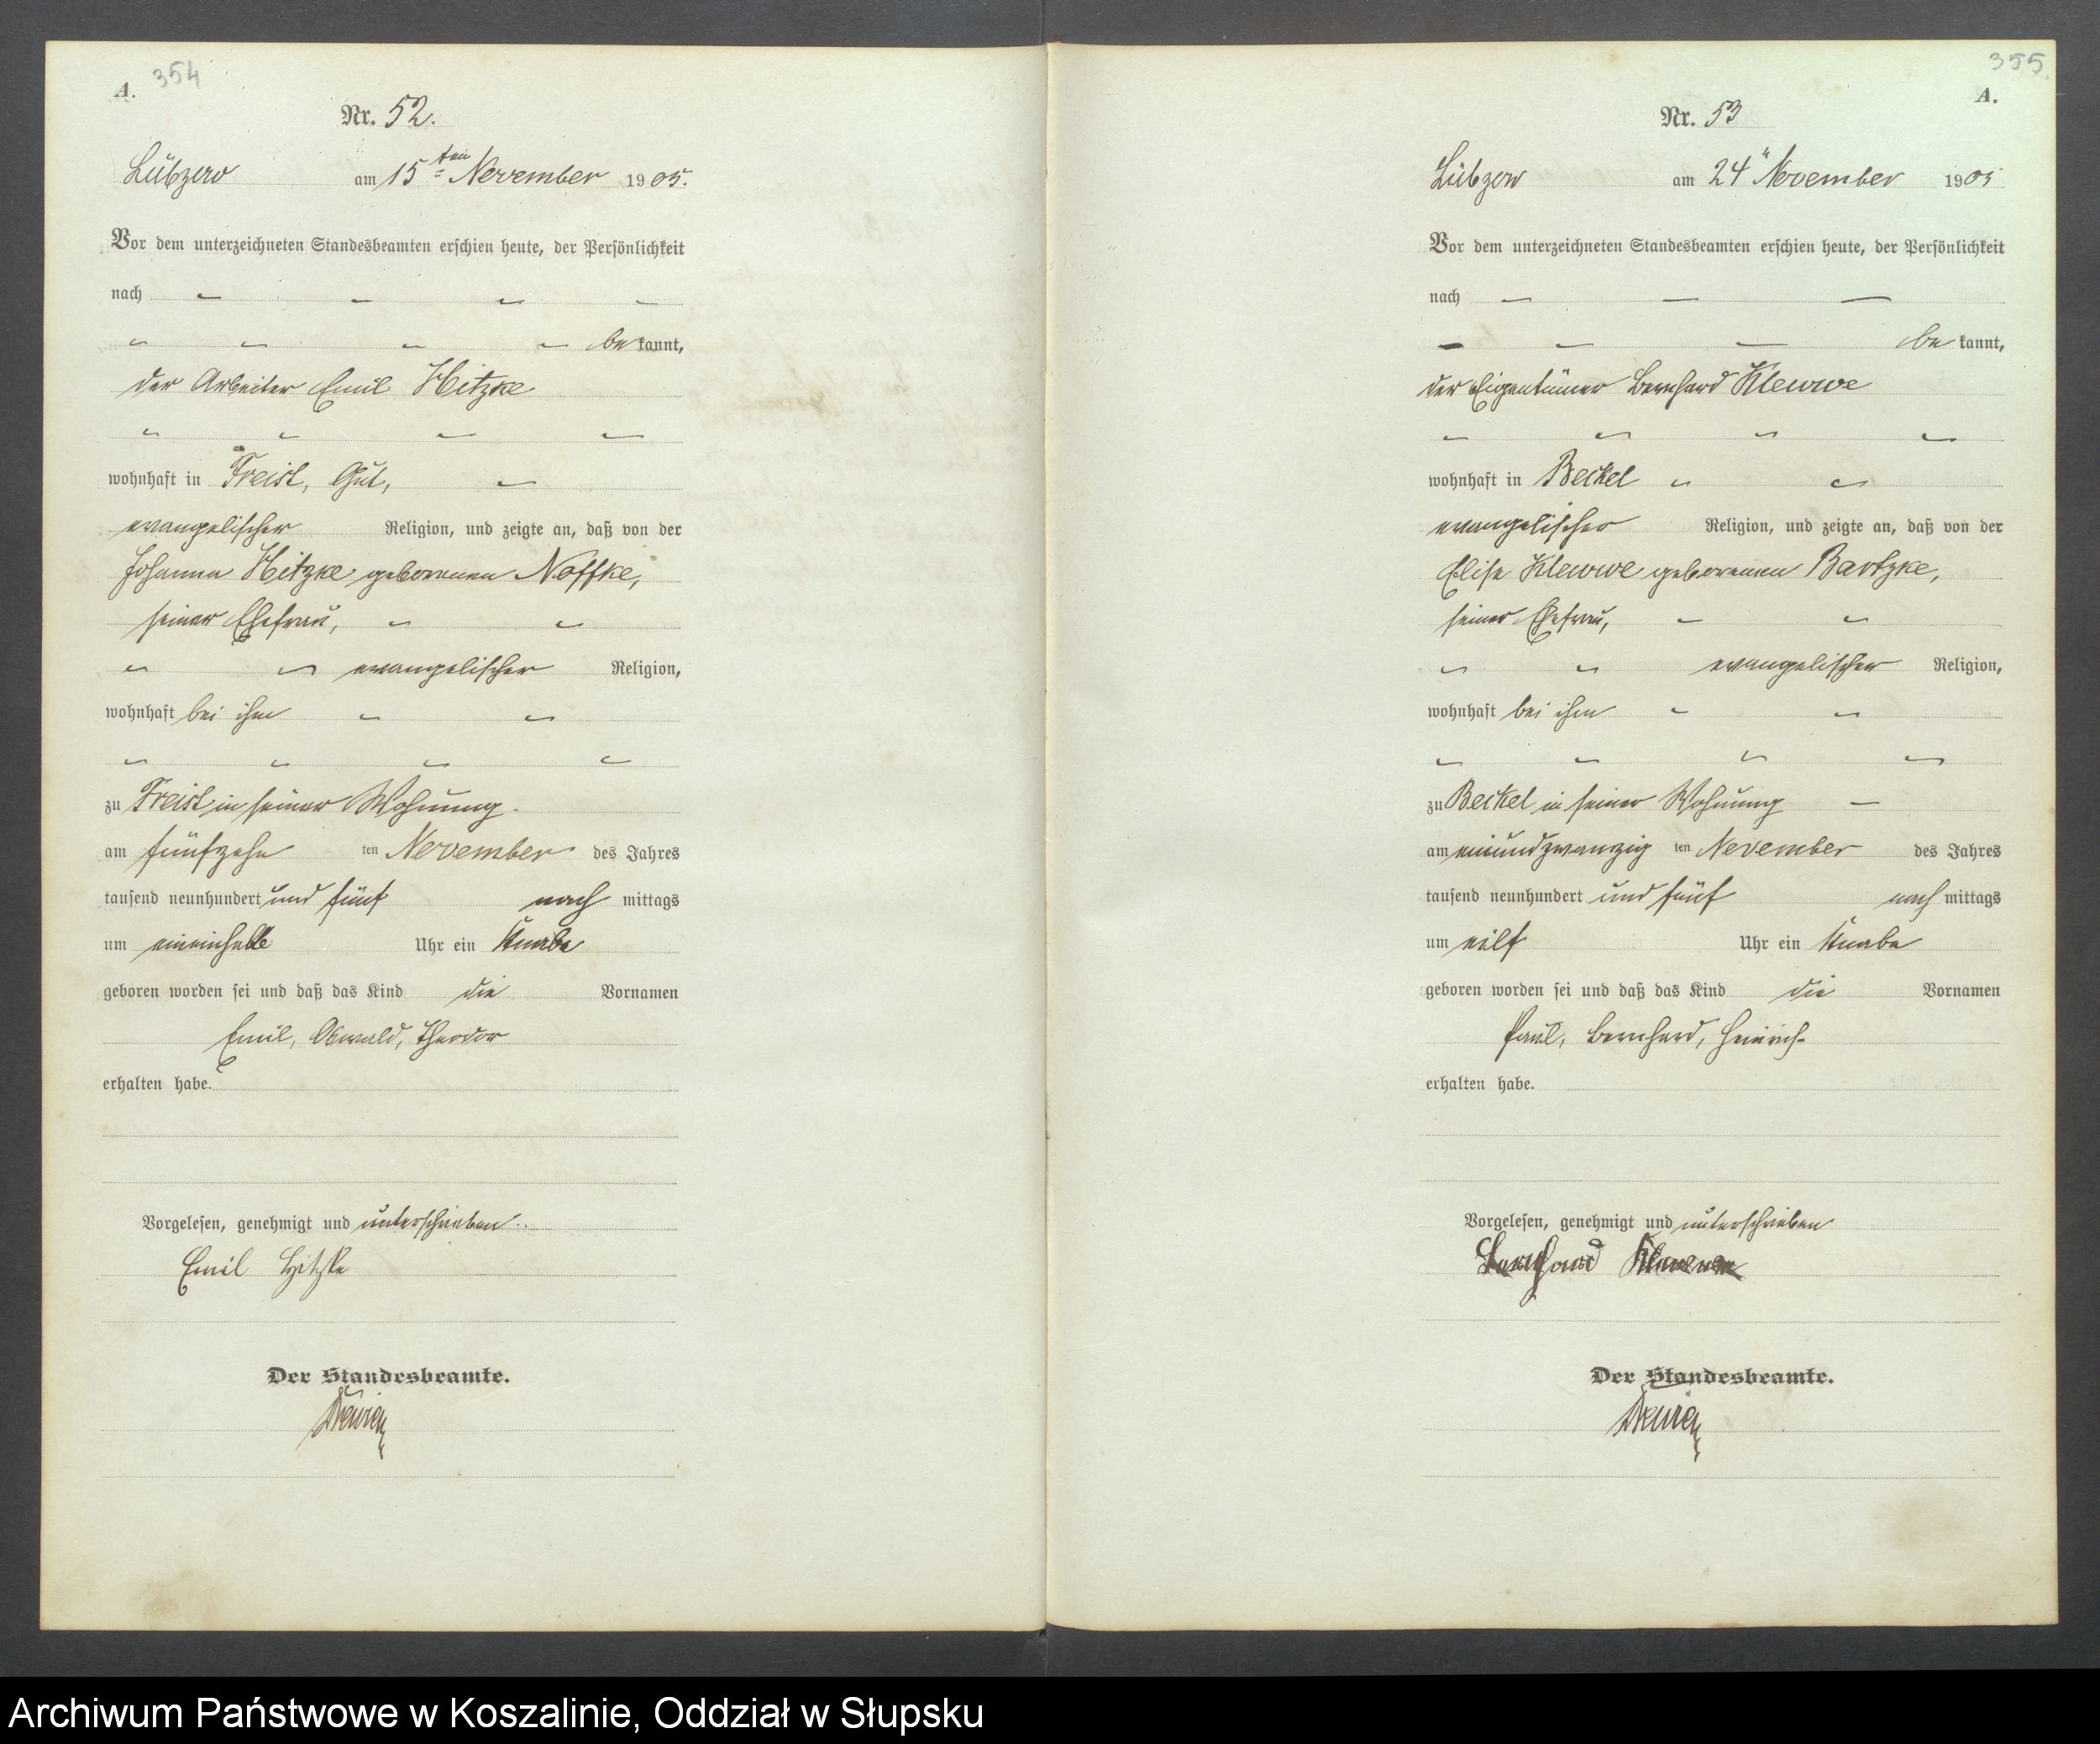 A. 354
Nr. 52.
Lübzow am 15ten November 1905.
Vor dem unterzeichneten Standesbeamten erschien heute, der Persönlichkeit
nach
be kannt,
der Arbeiter Emil Hitzke
wohnhaft in Freist, Gut,
evangelischer Religion, und zeigte an, daß von der
Johanna Hitzke geborenen Noffke,
seiner Ehefrau,
evangelischer Religion,
wohnhaft bei ihm
zu Freist in seiner Wohnung
am fünfzehn ten November des Jahres
tausend neunhundert und fünf nach mittags
um eineinhalb Uhr ein Knabe
geboren worden sei und daß das Kind die Vornamen
Emil, Oswald, Theodor
erhalten habe.
Vorgelesen, genehmigt und unterschrieben
Emil Hitzke
Der Standesbeamte.
355
A.
Nr. 53
Lübzow am 24" November 1905
Vor dem unterzeichneten Standesbeamten erschien heute, der Persönlichkeit
nach
be kannt,
der Eigentümer Bernhard Klewwe
wohnhaft in Beckel
evangelischer Religion, und zeigte an, daß von der
Elise Klewwe geborenen Bartzke,
seiner Ehefrau,
evangelischer Religion,
wohnhaft bei ihm
zu Beckel in seiner Wohnung
am einundzwanzig ten November des Jahres
tausend neunhundert und fünf nach mittags
um eilf Uhr ein Knabe
geboren worden sei und daß das Kind die Vornamen
Paul, Bernhard, Heinrich
erhalten habe.
Vorgelesen, genehmigt und unterschrieben
Bernhard Klewwe
Der Standesbeamte.
Archiwum Państwowe w Koszalinie, Oddział w Słupsku